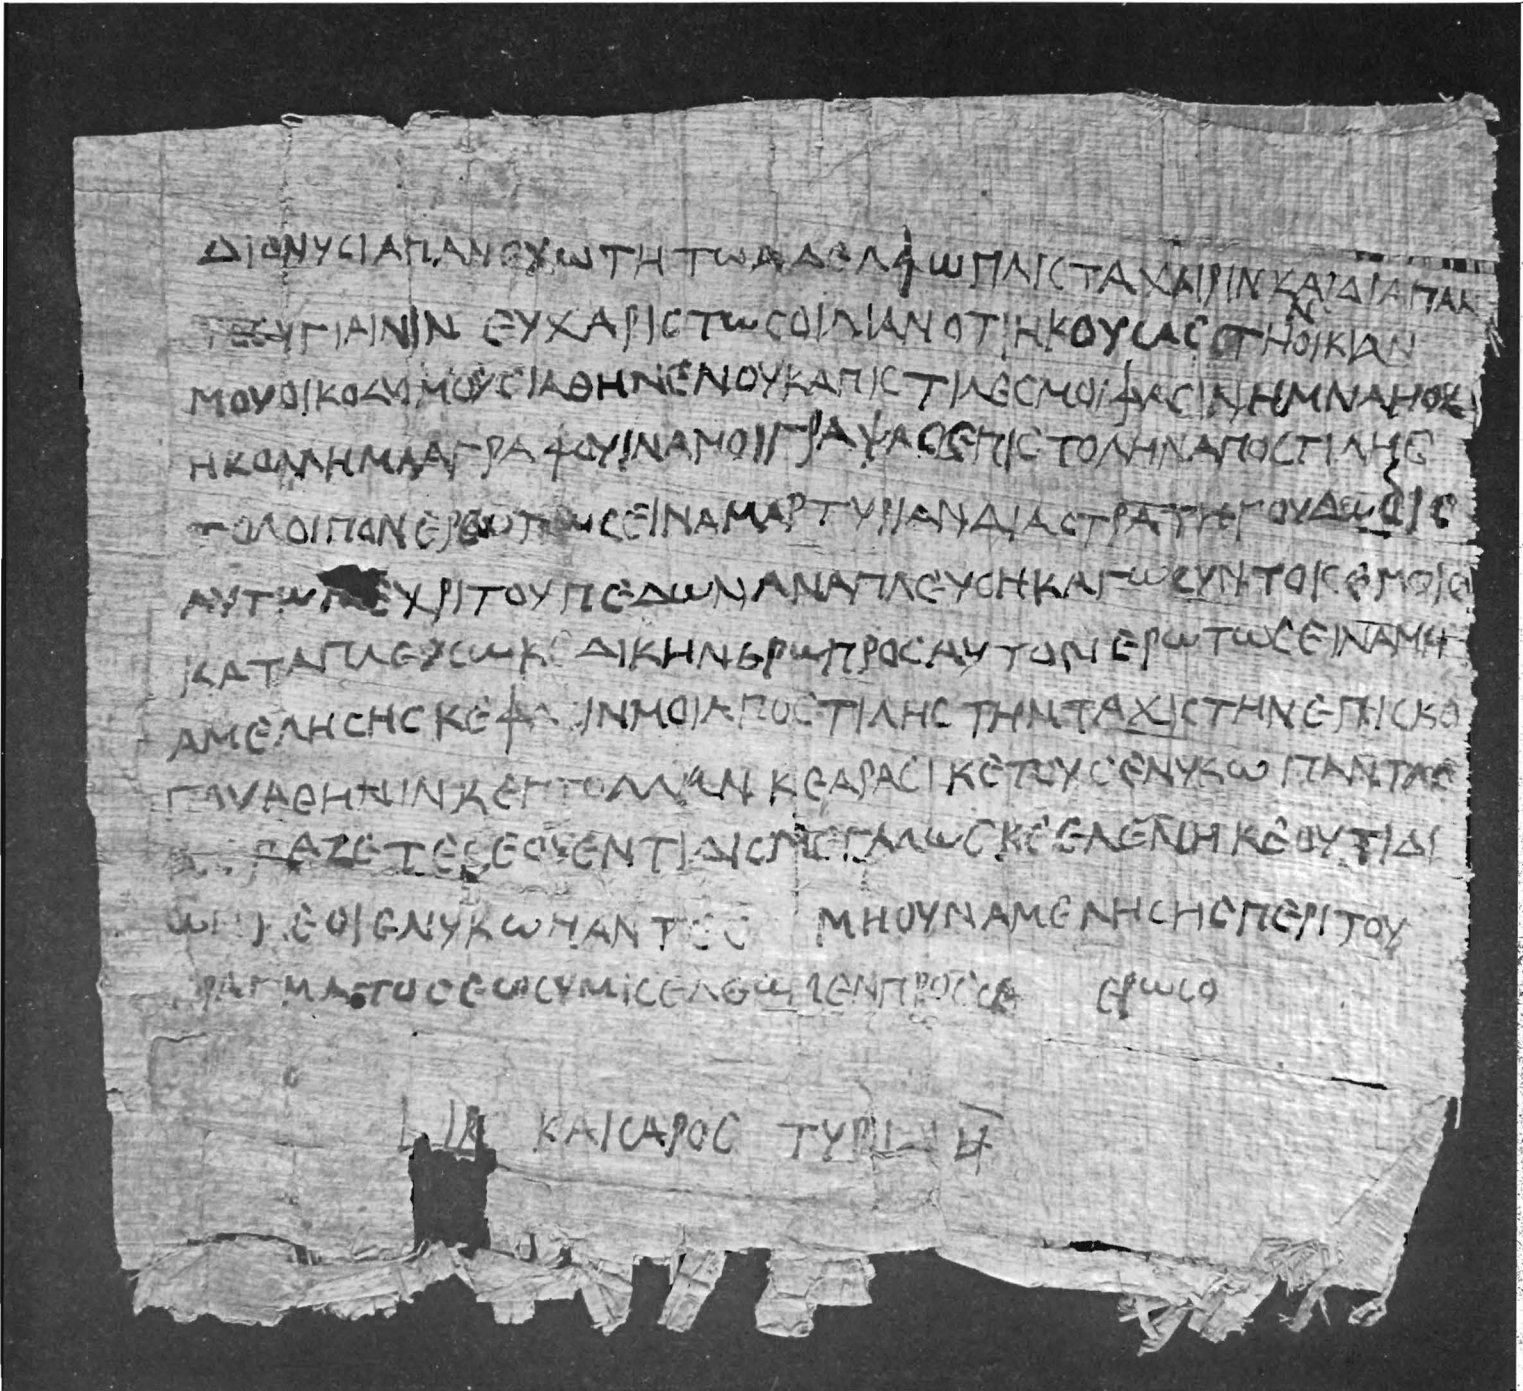 ΔΙΟΝΥΣΙΑ ΠΑΝΕΧΩΤΗ ΤΩ ΑΔΕΛΦΩ ΠΛΙΣΤΑ ΧΑΙΡΙΝ ΚΑΙ ΔΙΑ ΠΑΝ
ΤΟΣ ΥΓΙΑΙΝΙΝ ΕΥΧΑΡΙΣΤΩ ΣΟΙ ΛΙΑΝ ΟΤΙ ΗΚΟΥΣΑΣ ΟΤΙ ΤΗΝ ΟΙΚΙΑΝ
ΜΟΥ ΟΙΚΟΔΟΜΟΥΣΙ ΑΘΗΝΕΝΟΥΚ ΑΠΙΣΤΙΛΕΣ ΜΟΙ ΦΑΣΙΝ
Η ΚΟΛΛΗΜΑ ΑΓΡΑΦΟΥ ΙΝΑ ΜΟΙ ΓΡΑΨΑΣ ΕΠΙΣΤΟΛΗΝ ΑΠΟΣΤΙΛΗΣ
ΤΟ ΛΟΙΠΟΝ ΕΡΩΤΩ ΣΕ ΙΝΑ ΜΑΡΤΥΡΙΑΝ ΔΙΑ ΣΤΡΑΤΗΓΟΥ ΔΩΔΙΣ
ΑΥΤΩ ΜΕΧΡΙ ΤΟΥ ΠΕΔΩΝ ΑΝΑΠΛΕΥΣΗ ΚΑΓΩ ΣΥΝ ΤΟΙΣ ΕΜΟΙΣ
ΚΑΤΑΠΛΕΥΣΩ ΚΕ ΔΙΚΗΝ ΕΡΩ ΠΡΟΣ ΑΥΤΟΝ ΕΡΩΤΩ ΣΕ ΙΝΑ ΜΗ
ΑΜΕΛΗΣΗΣ ΚΕ ΦΑΣΙΝ ΜΟΙ ΑΠΟΣΤΙΛΗΣ ΤΗΝ ΤΑΧΙΣΤΗΝ ΕΠΙΣΚΟ
ΠΟΥ ΑΘΗΝΙΝ ΚΕ ΠΤΟΛΛΑΝ ΚΕ ΑΡΑΣΙ ΚΕ ΤΟΥΣ ΕΝ ΥΚΩ ΠΑΝΤΑΣ
ΑΣΠΑΖΕΤΕ ΣΕ ΕΥΕΝΤΙΔΙΣ ΜΕΓΑΛΩΣ ΚΕ ΕΛΕΝΗ ΚΕ ΟΥΤΙΔΙ
ΩΝ ΚΕ ΟΙ ΕΝ ΥΚΩ ΠΑΝΤΕΣ ΜΗ ΟΥΝ ΑΜΕΛΗΣΗΣ ΠΕΡΙ ΤΟΥ
ΠΡΑΓΜΑΤΟΣ ΕΩΣ ΥΜΙΣ ΕΛΘΩΜΕΝ ΠΡΟΣ ΣΕ ΕΡΩΣΟ
L ΚΑΙΣΑΡΟΣ ΤΥΒΙ